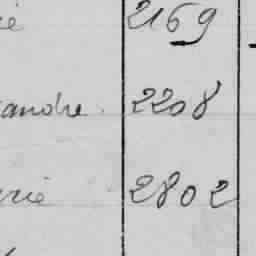 ie 2169
andre 2208
rie 2802